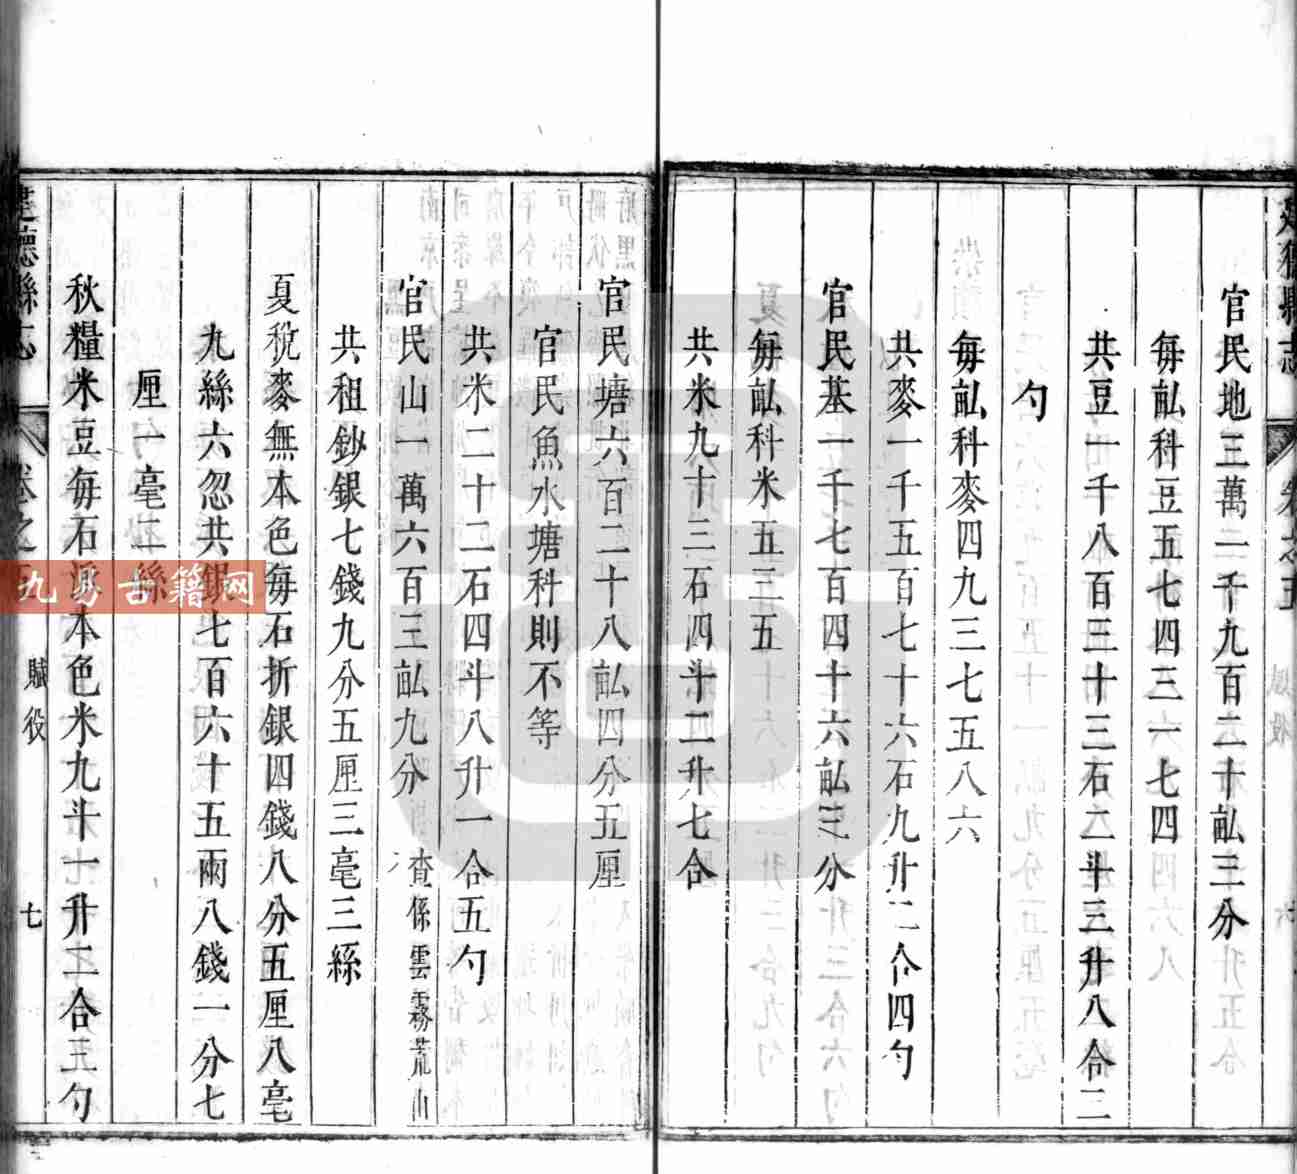 官民地三萬二千九百二十畝三分
每畝科豆五七四三一七四
共豆一千八百三十三石二斗三升八合二
勺
每畝科麥四九三七五八六
共麥一千五百七十六石九升二合四勺
官民基一千七百四十六畝三分
每畝科米五三五
共米九十三石四斗二升七合
官民塘六百二十八畝四分五厘
官民魚水塘科則不等
共米二十二石四斗八升一合五勺
官民山一萬六百三畝九分 查係雲霧荒山
共租鈔銀七錢九分五厘三毫三絲
夏稅麥無本色每石折銀四錢八分五厘八毫
九絲六忽共銀七百六十五兩八錢一分七
厘一毫二絲
秋糧米豆每石派本色米九斗一升二合三勺
建德縣志 卷之五 賦役 七
九易古籍网